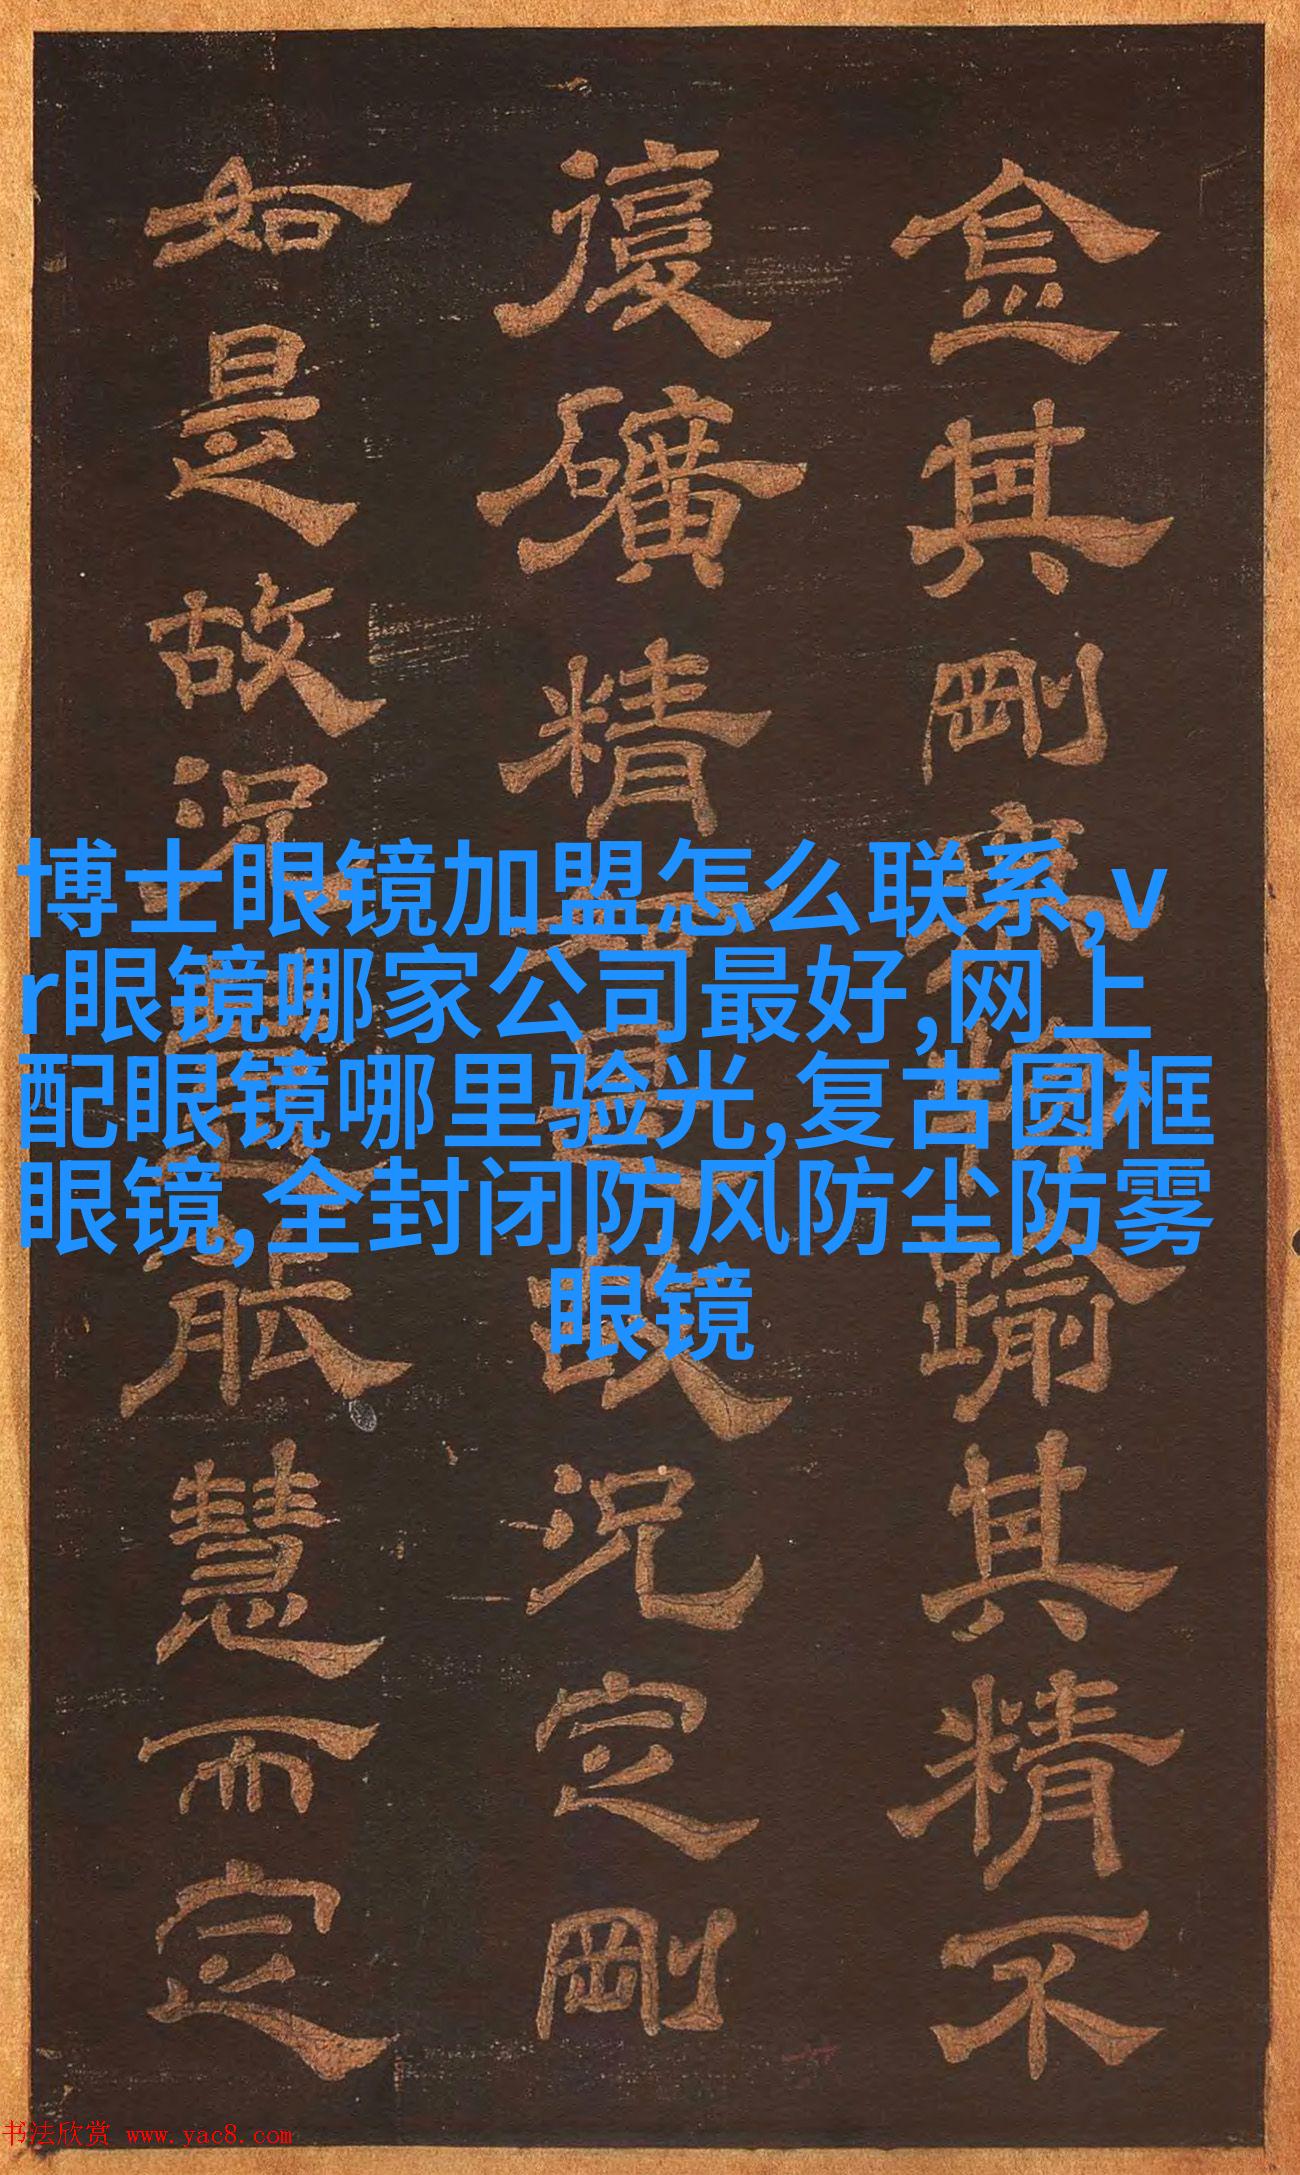 金其剛踰其精不
復礦精故況定剛
如是故況慧而定
博士眼镜加盟怎么联系,v
r眼镜哪家公司最好,网上
配眼镜哪里验光,复古圆框
眼镜,全封闭防风防尘防雾
眼镜
书法欣赏 www.yac8.com